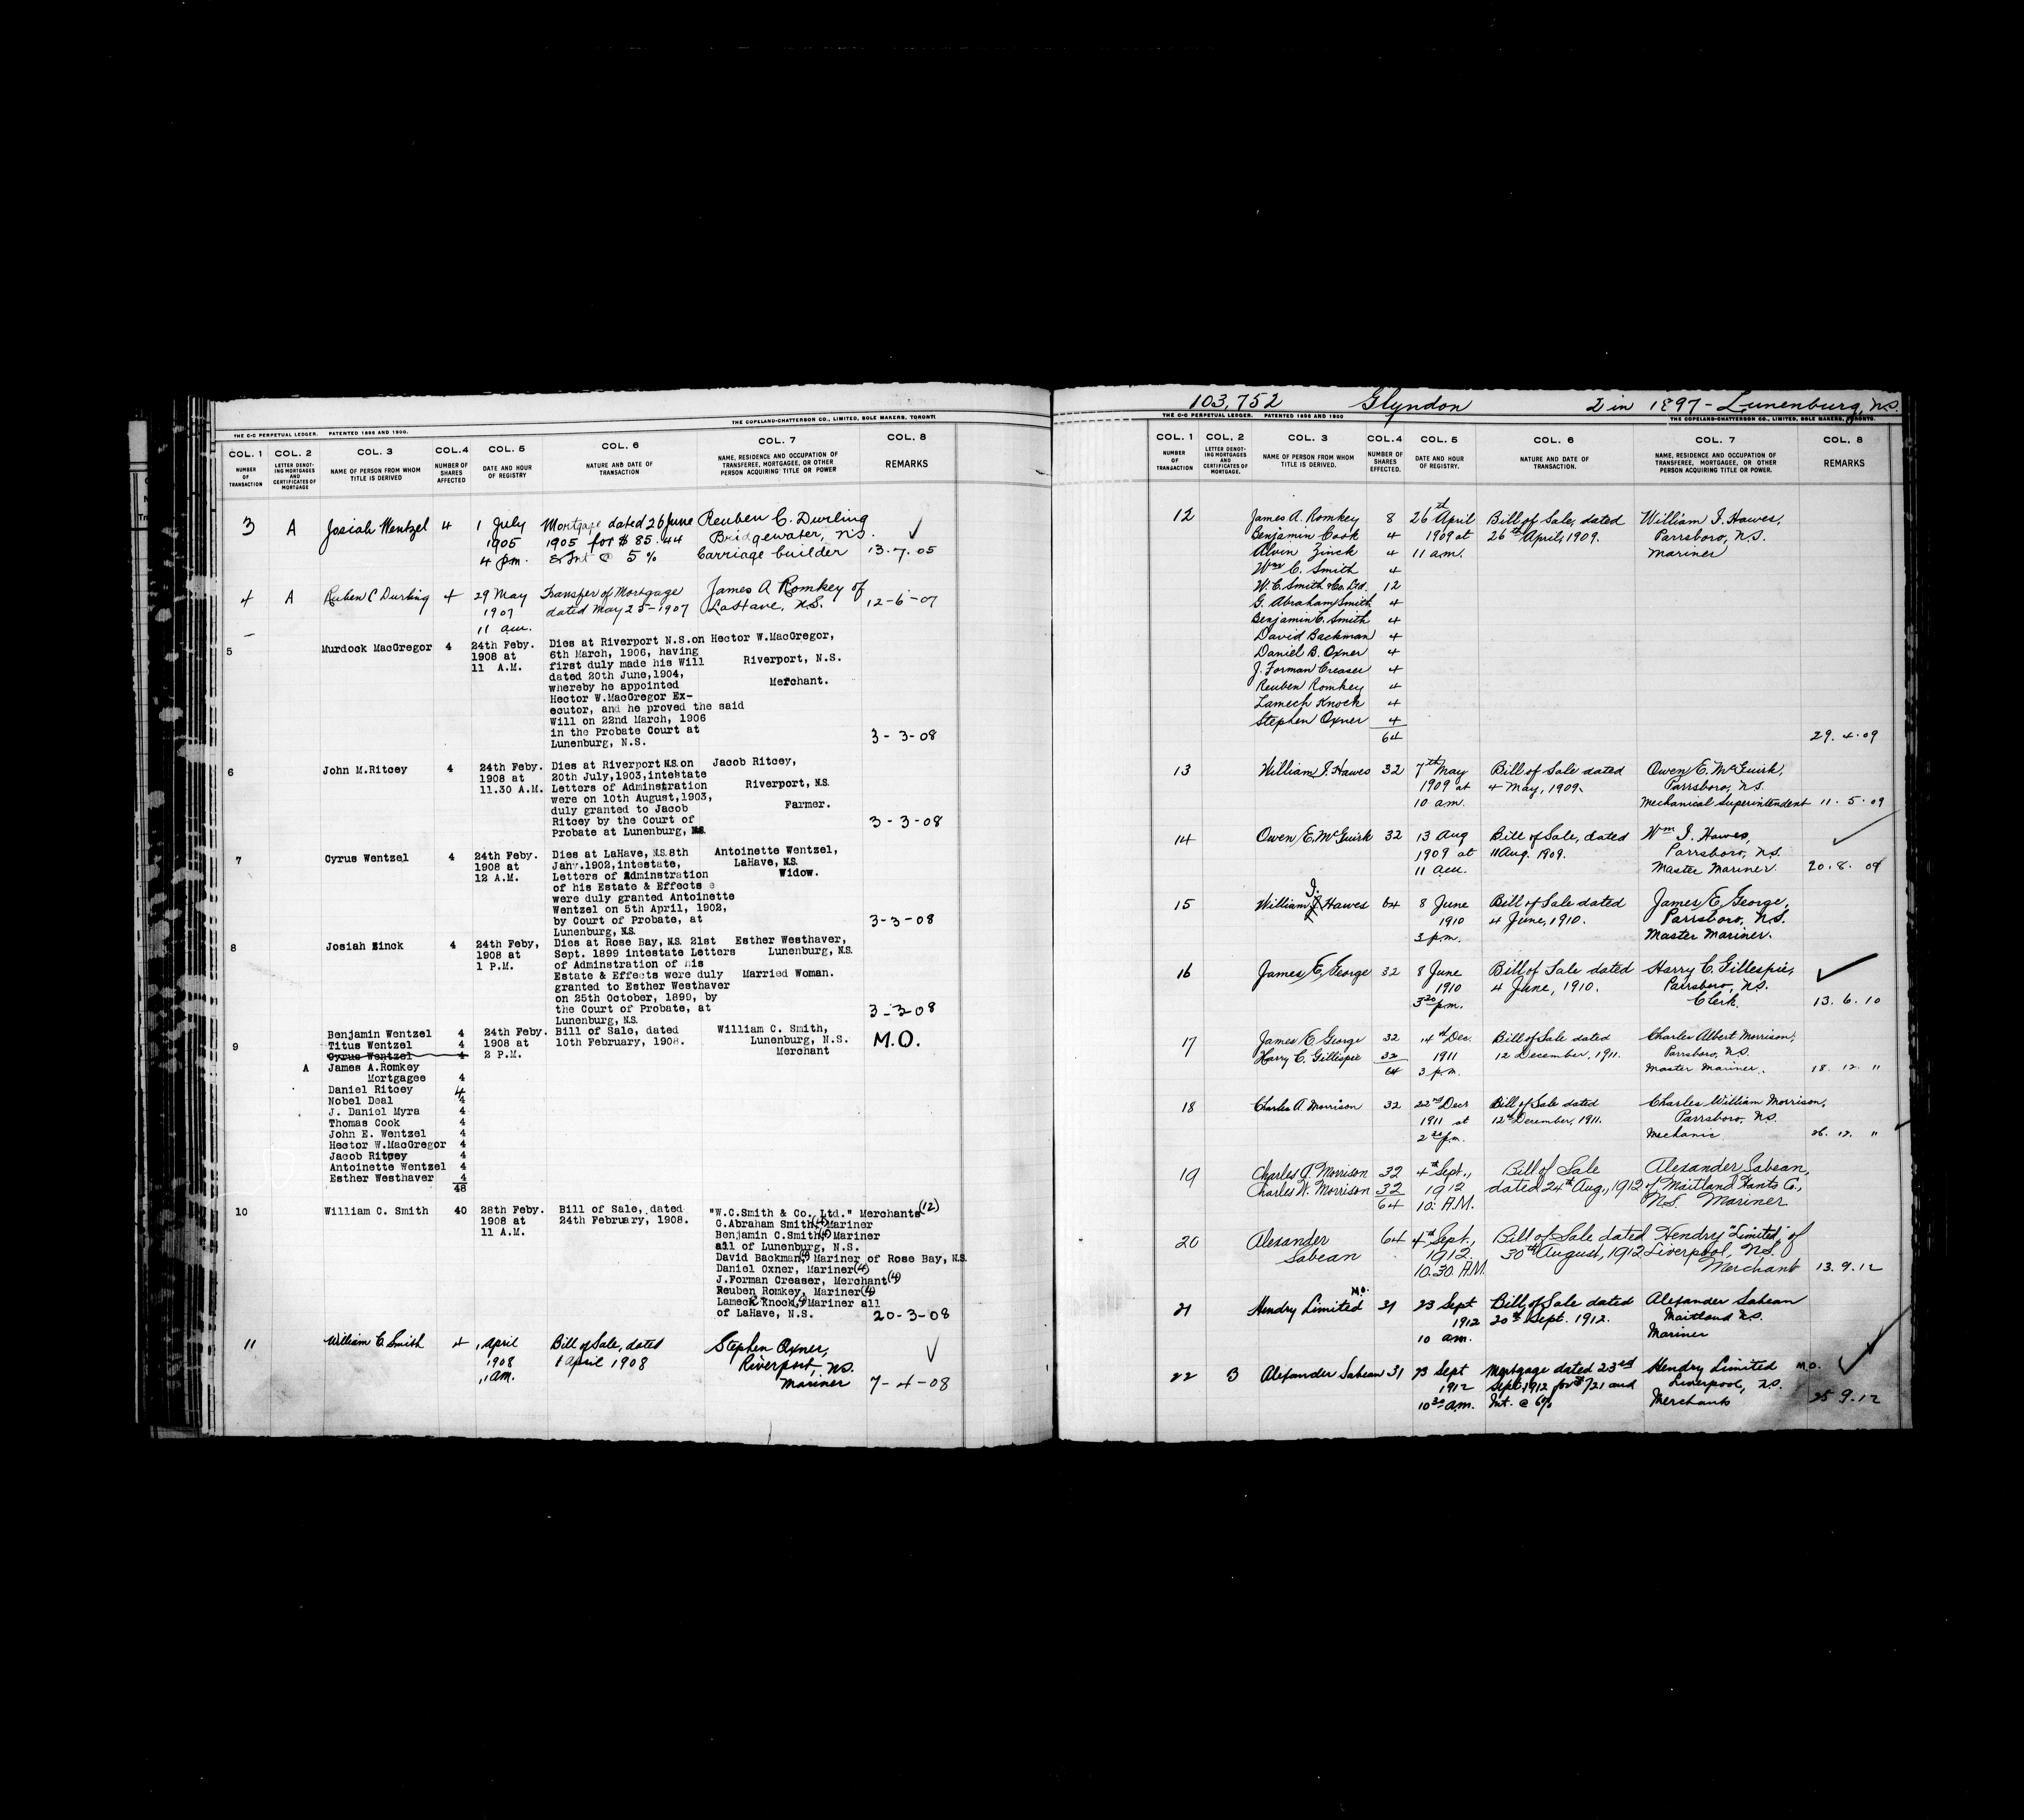 THE C-C PERPETUAL LEDGER. PATENTED 1896 AND 1900.
THE COPELAND-CHATTERSON CO., LIMITED, SOLE MAKERS, TORONTO
COL. 1 COL. 2 COL. 3 COL.4 COL. 5 COL. 6 COL. 7 COL. 8
NUMBER OF TRANSACTION
LETTER DENOTING MORTGAGES AND CERTIFICATES OF MORTGAGE
NAME OF PERSON FROM WHOM TITLE IS DERIVED
NUMBER OF SHARES AFFECTED
DATE AND HOUR OF REGISTRY
NATURE AND DATE OF TRANSACTION
NAME, RESIDENCE AND OCCUPATION OF TRANSFEREE, MORTGAGEE, OR OTHER PERSON ACQUIRING TITLE OR POWER
REMARKS
3 A Josiah Wentzel 4 1 July Mortgage dated 26 June Reuben C. Durling
1905 1905 for $ 85.44 Bridgewater, N.S.
4 p.m. & Int @ 5 % Carriage builder 13.7.05
4 A Ruben C Durling 4 29 May Transfer of Mortgage James A Romkey of
1907 dated May 25-1907 LaHave, N.S. 12-6-07
11 am.
5 Murdock MacGregor 4 24th Feby. Dies at Riverport N.S.on Hector W.MacGregor,
1908 at 6th March, 1906, having
11 A.M. first duly made his Will Riverport, N.S.
dated 20th June,1904,
whereby he appointed Merchant.
Hector W.MacGregor Ex-
ecutor, and he proved the said
Will on 22nd March, 1906
in the Probate Court at 3-3-08
Lunenburg, N.S.
6 John M.Ritcey 4 24th Feby. Dies at Riverport N.S.on Jacob Ritcey,
1908 at 20th July,1903,intehtate
11.30 A.M. Letters of Adminstration Riverport, N.S.
were on 10th August,1903,
duly granted to Jacob Farmer.
Ritcey by the Court of
Probate at Lunenburg, N.S. 3-3-08
7 Cyrus Wentzel 4 24th Feby. Dies at LaHave, N.S.8th Antoinette Wentzel,
1908 at Jany.1902,intestate, LaHave, N.S.
12 A.M. Letters of Adminstration Widow.
of his Estate & Effects
were duly granted Antoinette
Wentzel on 5th April, 1902,
by Court of Probate, at 3-3-08
Lunenburg, N.S.
8 Josiah Zinck 4 24th Feby, Dies at Rose Bay, N.S. 21st Esther Westhaver,
1908 at Sept. 1899 intestate Letters Lunenburg, N.S.
1 P.M. of Adminstration of his
Estate & Effects were duly Married Woman.
granted to Esther Westhaver
on 25th October, 1899, by
the Court of Probate, at 3-3-08
Lunenburg, N.S.
9 Benjamin Wentzel 4 24th Feby. Bill of Sale, dated William C. Smith,
Titus Wentzel 4 1908 at 10th February, 1908. Lunenburg, N.S. M.O.
Cyrus Wentzel 4 2 P.M. Merchant
A James A.Romkey
Mortgagee 4
Daniel Ritcey 4
Nobel Deal 4
J. Daniel Myra 4
Thomas Cook 4
John E. Wentzel 4
Hector W.MacGregor 4
Jacob Ritcey 4
Antoinette Wentzel 4
Esther Westhaver 4
48
10 William C. Smith 40 28th Feby. Bill of Sale, dated "W.C.Smith & Co. Ltd." Merchants (12)
1908 at 24th February, 1908. C.Abraham Smith, (4) Mariner
11 A.M. Benjamin C.Smith, (4) Mariner
all of Lunenburg, N.S.
David Backman, (4) Mariner of Rose Bay, N.S.
Daniel Oxner, Mariner (4)
J.Forman Creaser, Merchant (4)
Reuben Romkey, Mariner (4)
Lameck Knock, (4) Mariner all
of LaHave, N.S. 20-3-08
11 William C Smith 4 1 April Bill of Sale, dated Stephen Oxner,
1908 1 April 1908 Riverport, N.S.
11 am. Mariner 7-4-08
103,752 Glyndon 2 in 1897 - Lunenburg, N.S.
THE C-C PERPETUAL LEDGER. PATENTED 1896 AND 1900
THE COPELAND-CHATTERSON CO., LIMITED, SOLE MAKERS, TORONTO.
COL. 1 COL. 2 COL. 3 COL.4 COL. 5 COL. 6 COL. 7 COL. 8
NUMBER OF TRANSACTION
LETTER DENOTING MORTGAGES AND CERTIFICATES OF MORTGAGE.
NAME OF PERSON FROM WHOM TITLE IS DERIVED.
NUMBER OF SHARES EFFECTED.
DATE AND HOUR OF REGISTRY.
NATURE AND DATE OF TRANSACTION.
NAME, RESIDENCE AND OCCUPATION OF TRANSFEREE, MORTGAGEE, OR OTHER PERSON ACQUIRING TITLE OR POWER.
REMARKS
12 James A. Romkey 8 26th April Bill of Sale, dated William I. Hawes,
Benjamin Cook 4 1909 at 26th April, 1909. Parrsboro, N.S.
Alvin Zinck 4 11 a.m. Mariner
Wm C. Smith 4
W.C. Smith & Co. Ltd. 12
G. Abraham Smith 4
Benjamin C. Smith 4
David Backman 4
Daniel B. Oxner 4
J. Forman Creaser 4
Reuben Romkey 4
Lamech Knock 4
Stephen Oxner 4
64 29.4.09
13 William I. Hawes 32 7th May Bill of Sale dated Owen E. McGuirk,
1909 at 4 May, 1909. Parrsboro, N.S.
10 am. Mechanical Superintendent 11.5.09
14 Owen E. McGuirk 32 13 Aug Bill of Sale, dated Wm I. Hawes,
1909 at 11 Aug. 1909. Parrsboro, N.S.
11 am. Master Mariner. 20.8.09
15 William I. Hawes 64 8 June Bill of Sale dated James E. George,
1910 4 June, 1910. Parrsboro, N.S.
3 p.m. Master Mariner.
16 James E. George 32 8 June Bill of Sale dated Harry C. Gillespie,
1910 4 June, 1910. Parrsboro, N.S.
3 30 p.m. Clerk. 13.6.10
17 James E. George 32 14th Dec. Bill of Sale dated Charles Albert Morrison,
Harry C. Gillespie 32 1911 12 December, 1911. Parrsboro, N.S.
64 3 p.m. Master Mariner. 18.12 "
18 Charles A. Morrison 32 22nd Decr Bill of Sale dated Charles William Morrison,
1911 at 12th December, 1911. Parrsboro, N.S.
p.m. Mechanic 26.12. "
19 Charles A. Morrison 32 4th Sept., Bill of Sale Alexander Sabean,
Charles W. Morrison 32 1912 dated 24th Aug., 1912 of Maitland Hants Co.,
64 10: A.M. N.S. Mariner
20 Alexander 64 4th Sept., Bill of Sale dated Hendry "Limited," of
Sabean 1912. 30th August, 1912 Liverpool, N.S.
10.30 A.M. Merchant 13.9.12
21 Hendry Limited M.O. 31 23 Sept Bill of Sale dated Alexander Sabean
1912 20th Sept. 1912. Maitland N.S.
10 am. Mariner
22 B Alexander Sabean 31 23 Sept Mortgage dated 23rd Hendry Limited M.O.
1912 Sept. 1912 for $721 and Liverpool, N.S.
10 30 a.m. Int. @ 6% Merchants 25 9.12